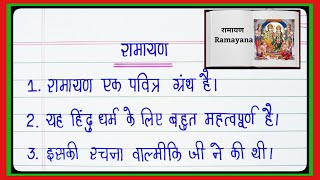 रामायण
रामायण
Ramayana
1. रामायण एक पवित्र ग्रंथ है।
2. यह हिंदु धर्म के लिए बहुत महत्वपूर्ण है।
3. इसकी रचना वाल्मीकि जी ने की थी।